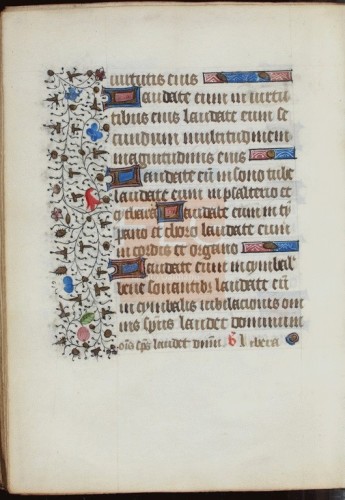 virtutis eius
Laudate eum in virtu
tibus eius laudate eum se
cundum multitudinem
magnitudinis eius
Laudate eū in sono tube
laudate eum in psalterio et
cythara Laudate eum in ti
pano et choro laudate eum
in cordis et organo
Laudate eum in cymbalis
bene sonantibus laudate eū
in cymbalis iubilacionis om
nis spūs laudet dominum
om̄s sp̄s laudet dm̄m Libera